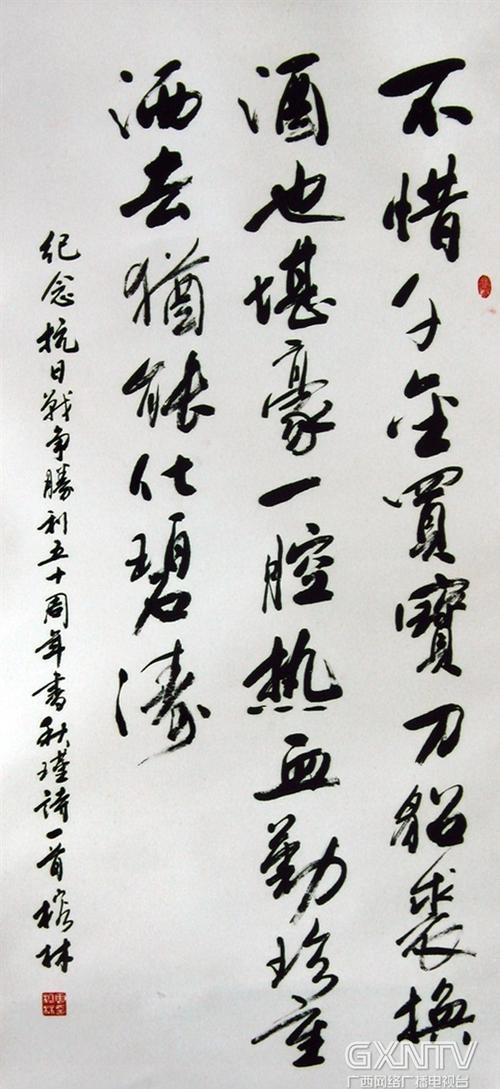 不惜千金買寶刀貂裘換
酒也堪豪一腔热血勤珍重
洒去猶能化碧濤
纪念抗日戰争勝利五十周年書秋瑾詩一首林
GXNTV
广西网络广播电视台